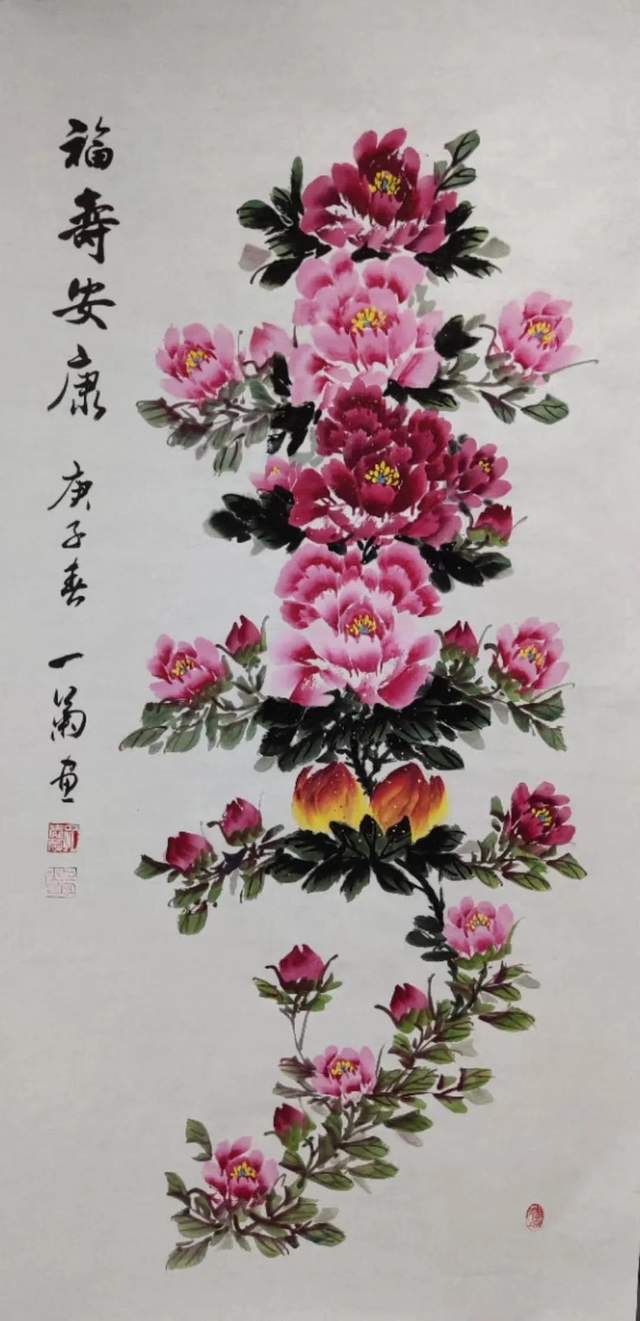 福寿安康
庚子春
一
画